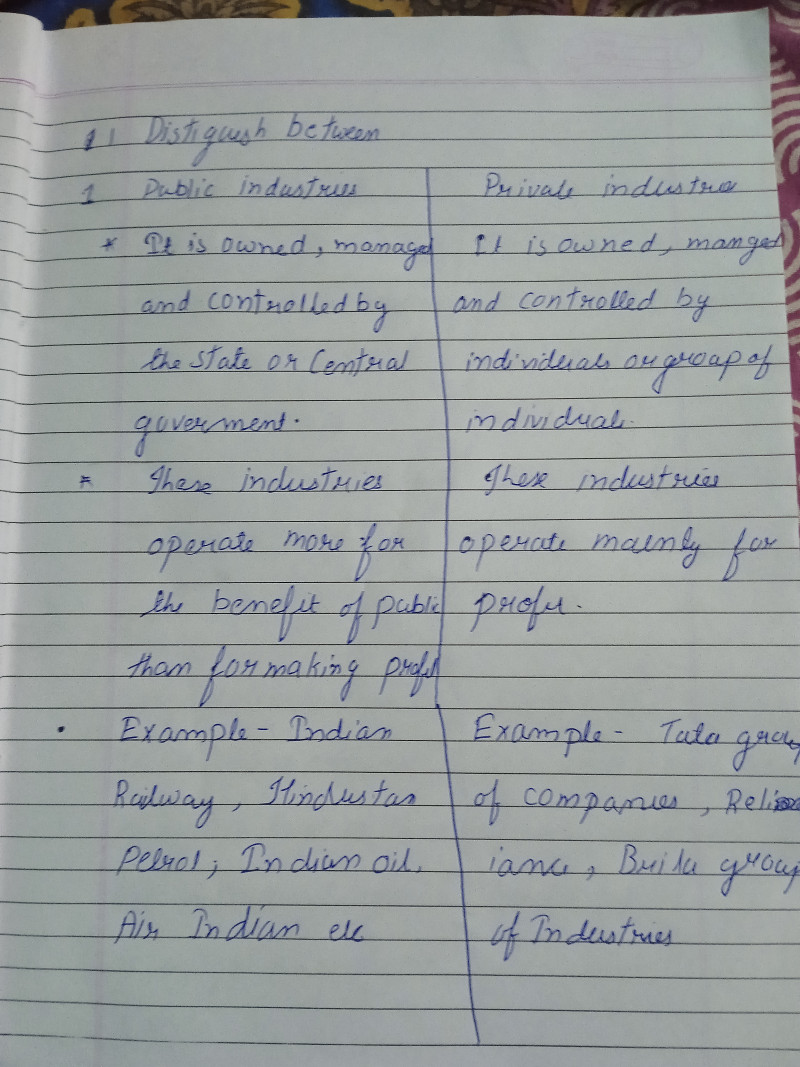 11 Distiguish between
1 Public industries Private industre
* It is owned, managed It is owned, manged
and controlled by and controlled by
the state or Central individuals or group of
goverment. individual.
* These industries These industries
operate more for operate mainly for
the benefit of public profit.
than for making profit
• Example - Indian Example - Tata group
Railway, Hindustan of companies, Reli
Petrol, Indian oil, iance, Birila group
Air Indian etc of Industries